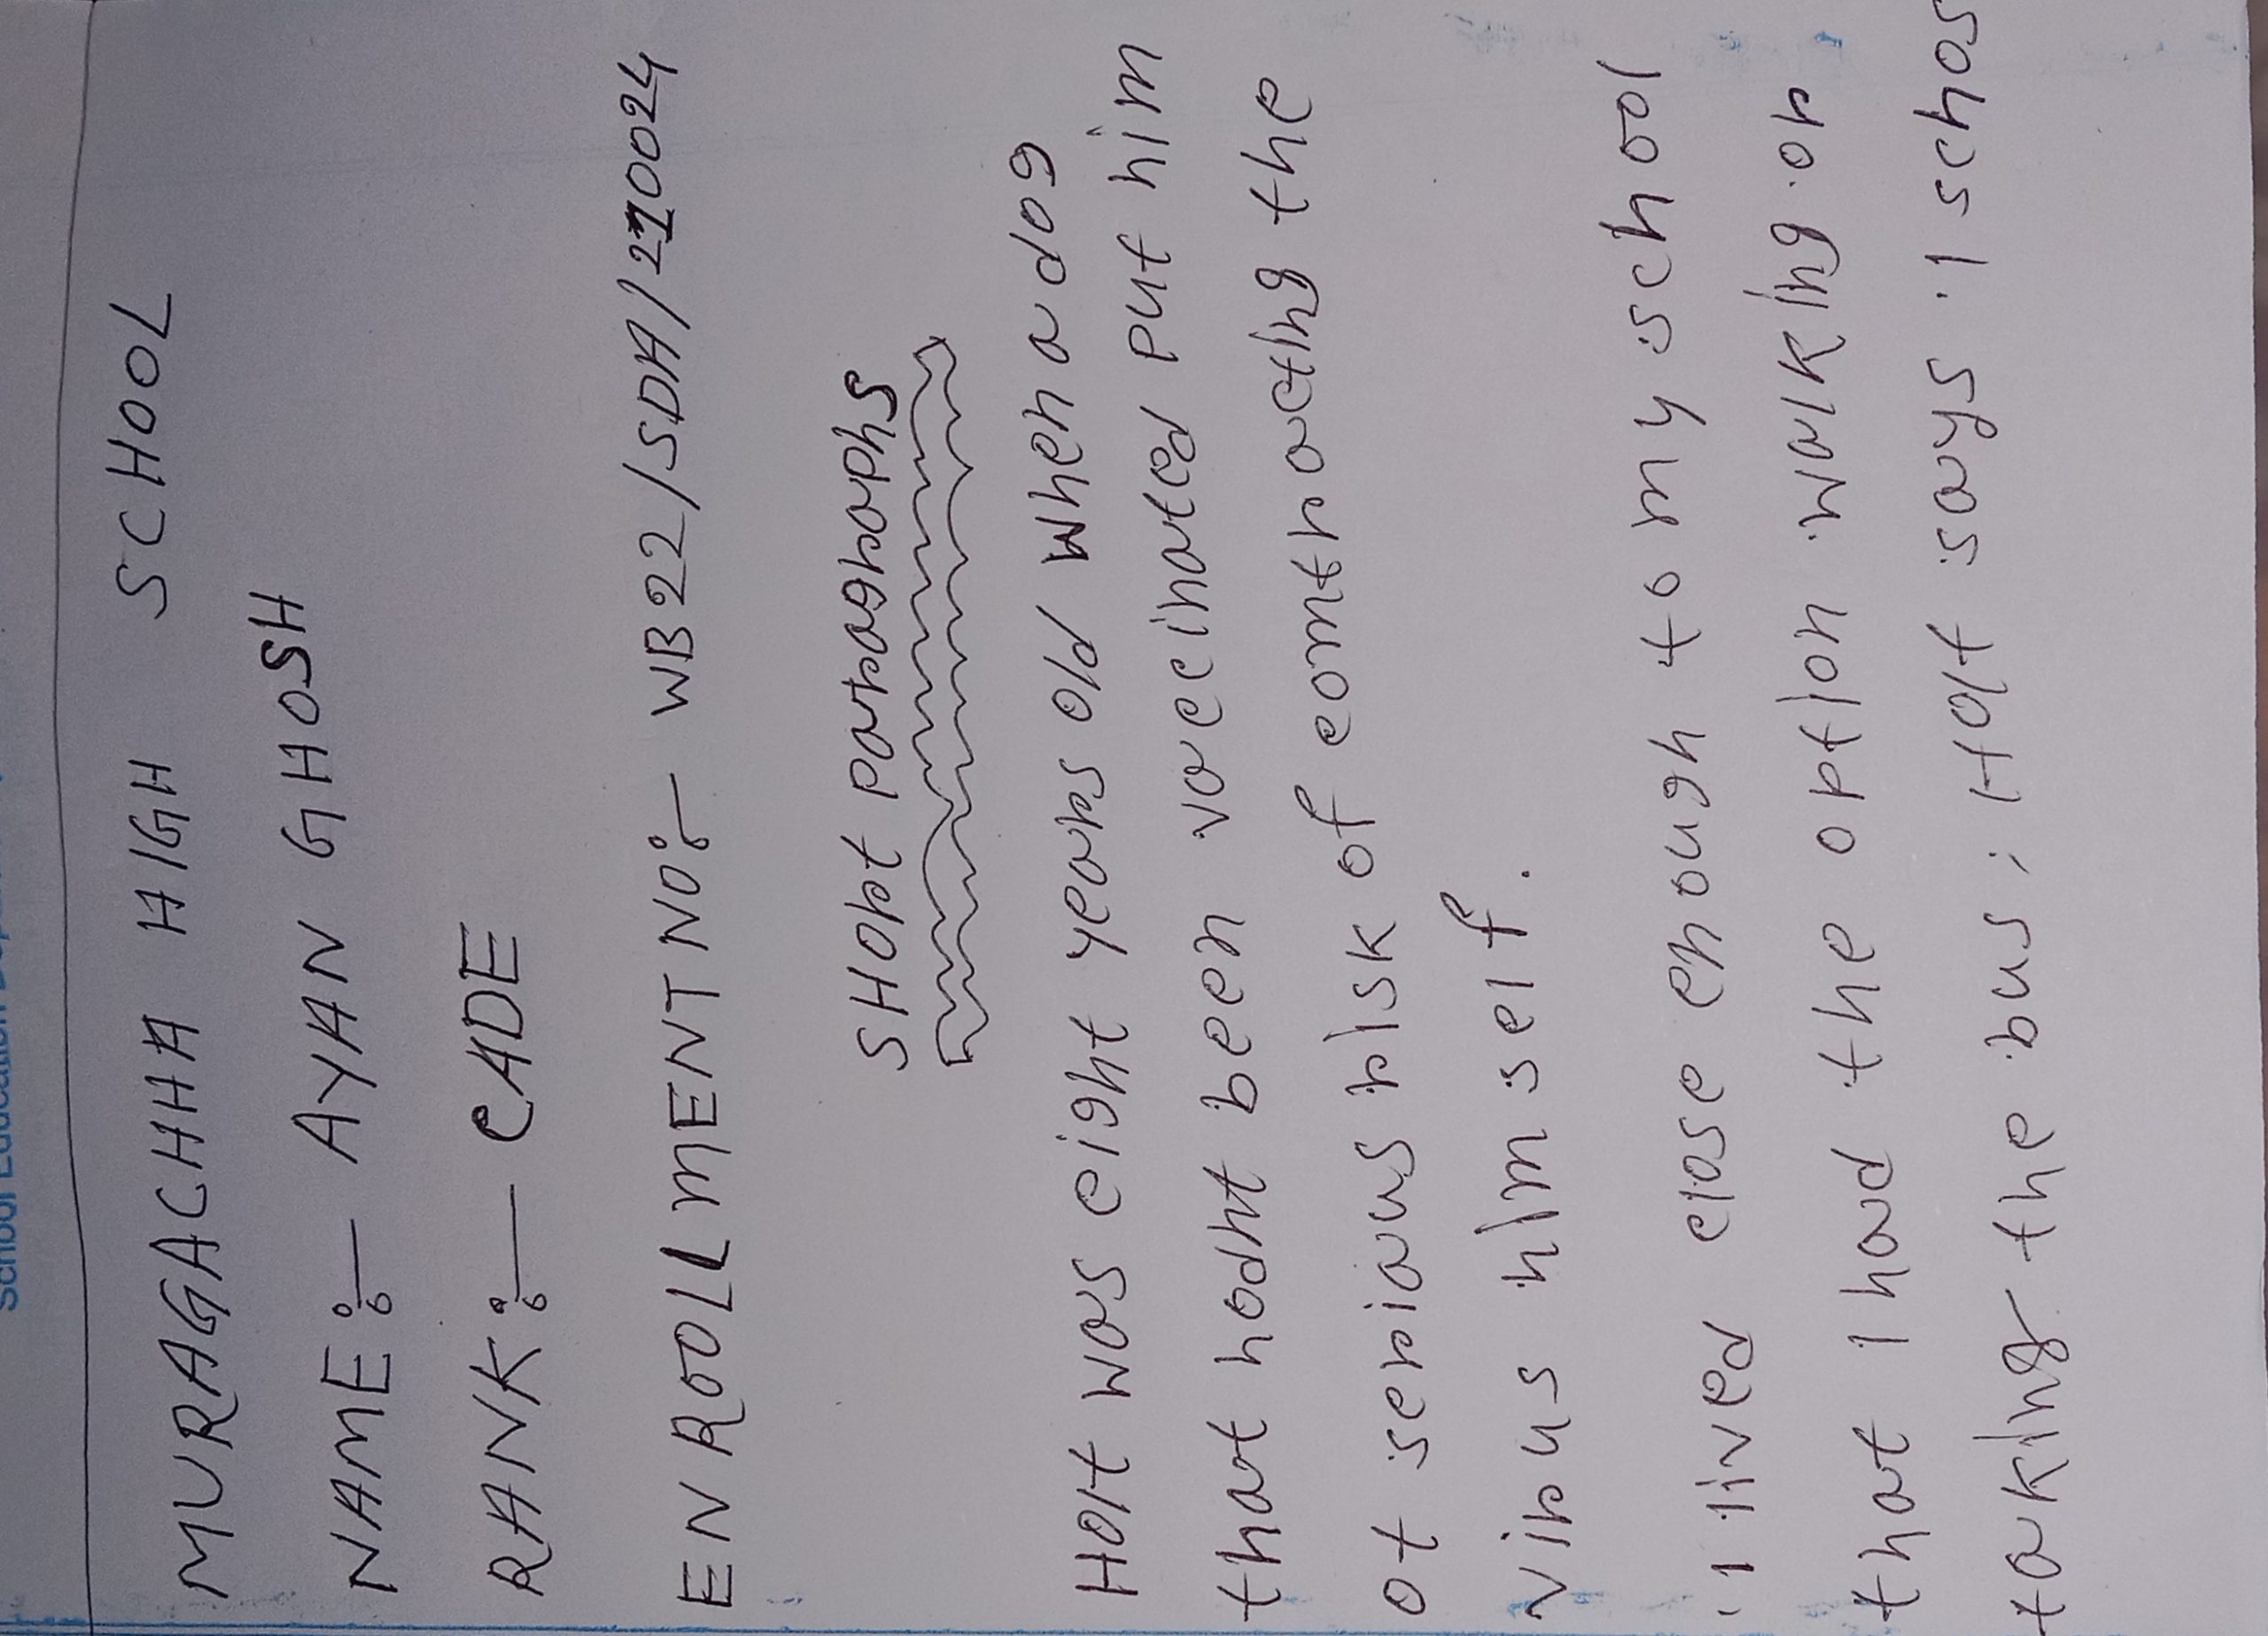 MURAGACHHA HIGH SCHOOL
NAME:- AYAN GHOSH
RANK:- CADE
ENROOLLMENT NO:- WB22/SDA/210024
SHORt Paragraphs
Holt was eight years old when a dog
that hadnt been vaccinated put him
at serious risk of contracting the
virus himself.
"I lived close enough to my school
that I had the option walking or
taking the bus; Holt says. I